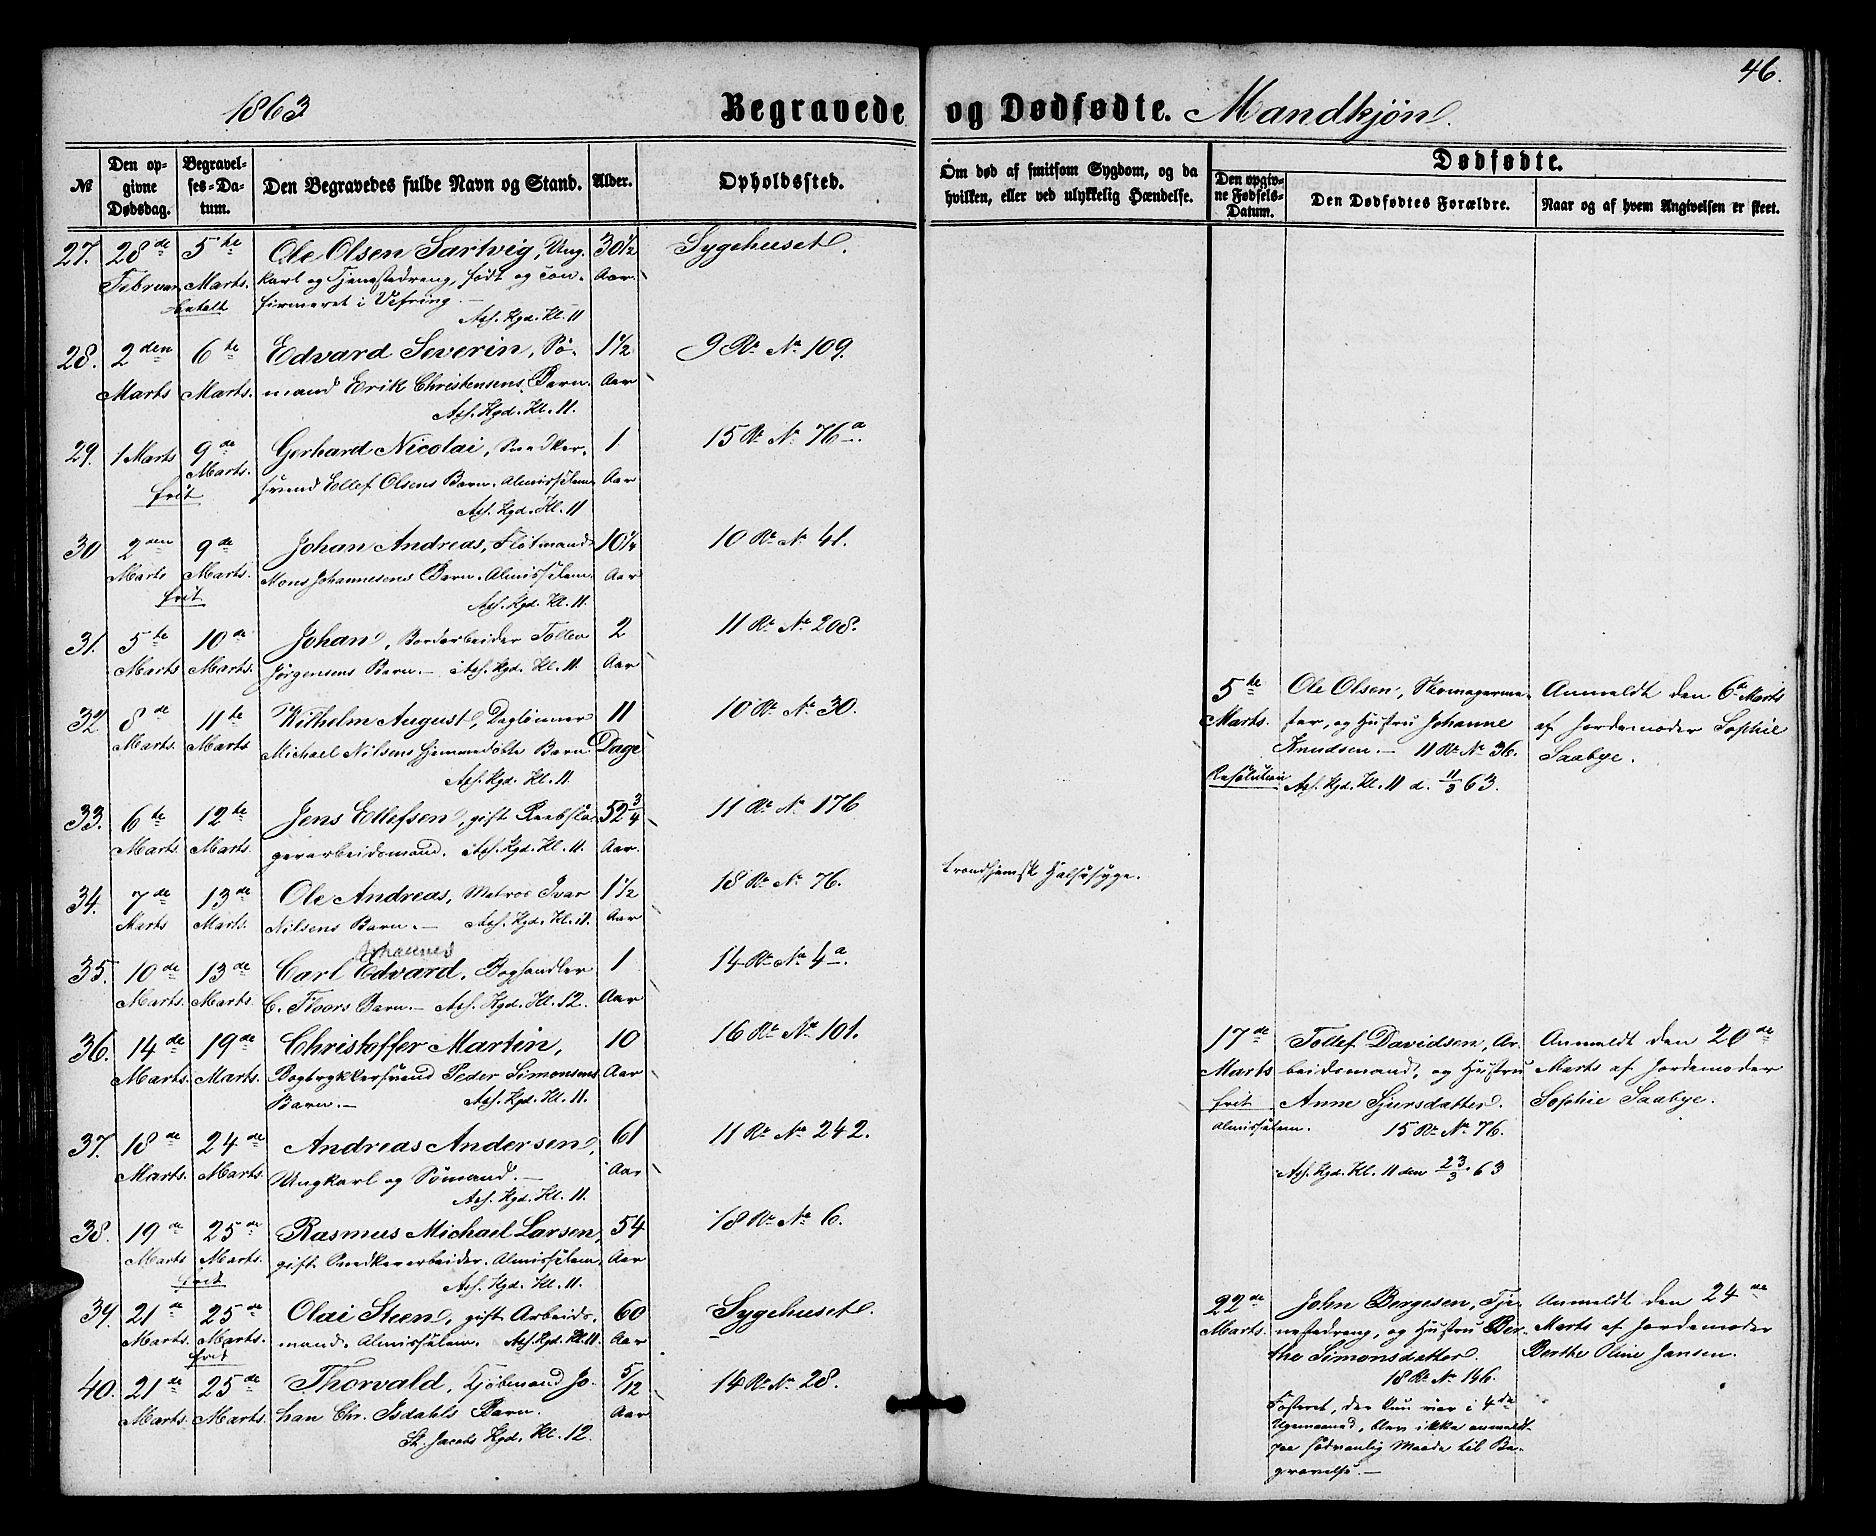 46.
1863 Begravede og Dødfødte. Mandkjøn.
№ Den opgivne Dødsdag. Begravelses-Datum. Den Begravedes fulde Navn og Stand. Alder. Opholdssted. Om død af smitsom Sygdom, og da hvilken, eller ved ulykkelig Hændelse.
Dødfødte.
Den opgivne Fødsels-Datum. Den Dødfødtes Forældre. Naar og af hvem Angivelsen er skeet.
27. 28de 5te Ole Olsen Sartvig, Ung- 30 1/2 Sygehuset.
Februar Marts. karl og Tjenestedreng, født og con- Aar.
betalt firmeret i Vefring.—
Ass. Kgd. Kl. 11
28. 2den 6te Edvard Severin, Sø- 1 1/2 9 Rd. No 109.
Marts Marts. mand Erik Christensens Barn. Aar
Ass. Kgd. Kl. 11.
29. 1 Marts 9de Gerhard Nicolai, Snedker- 1 15 Rd. No 76a.
Marts. svend Ellef Olsens Barn. Almisselem. Aar
frit Ass. Kgd. Kl. 11
30 2den 9de Johan Andreas, Fløtmand 10 1/4 10 Rd. No 41.
Marts Marts. Mons Johannesens Barn. Almisselem. Aar
frit Ass. Kgd. Kl. 11.
31. 5te 10de Johan, Bordarbeider Tollev 2 11 Rd. No 208.
Marts Marts. Jørgensens Barn.— Ass. Kgd. Kl. 11. Aar
32. 8de 11te Wilhelm August, Daglønner 11 10 Rd. No 30.
Marts. Marts Michael Nilsens hjemmedøbte Barn Dage
Ass. Kgd. Kl. 11.
5te Ole Olsen, Skomagerme- Anmeldt den 6te Marts
Marts. ster, og Hustru Johanne af Jordemoder Sophie
Knudsen.— 11 Rd. No 36. Saabye.
Resolution Ass. Kgd. Kl. 11 d. 11/3 63.
33. 6te 12te Jens Ellefsen, gift Reebsla- 52 3/4 11 Rd. No 176
Marts. Marts. gerarbeidsmand. Ass. Kgd. Kl. 11. Aar.
34. 7de 13de Ole Andreas, Matros Ivar 1 1/2 18 Rd. No 76. trondhjemsk Halssyge.
Marts Marts. Nilsens Barn.— Ass. Kgd. Kl. 11. Aar
Johannes
35. 10de 13de Carl Edvard, Boghandler 1 14 Rd. No 4a.
Marts. Marts. C. Floors Barn.— Ass. Kgd. Kl. 12. Aar
36. 14de 19de Christoffer Martin, 10 16 Rd. No 101.
Marts. Marts. Bogtrykkersvend Peder Simonsens Aar
Barn.— Ass. Kgd. Kl. 11.
17de Tollef Davidsen, Ar- Anmeldt den 20de
Marts beidsmand, og Hustru Marts af Jordemoder
frit Anne Sjursdatter. Sophie Saabye.
Almisselem. 15 Rd. No 76.
Ass. Kgd. Kl. 11 den 23/3 63
37. 18de 24de Andreas Andersen, 61 11 Rd. No 242.
Marts. Marts. Ungkarl og Sømand.— Aar
Ass. Kgd. Kl. 11.
38. 19de 25de Rasmus Michael Larsen, 54 18 Rd. No 6.
Marts Marts. gift Snedkerarbeider. Almisselem. Aar
frit Ass. Kgd. Kl. 11.
39. 21de 25de Olai Steen, gift Arbeids- 60 Sygehuset.
Marts. Marts. mand. Almisselem. Ass. Kgd. Kl. 11. Aar
frit
22de John Bergesen, Tje- Anmeldt den 24de
Marts. nestedreng, og Hustru Ber- Marts af Jordemoder
the Simonsdatter. Berthe Oline Jansen.
18 Rd. No 146.
Fosteret, der kun var i 4de
Ugemaaned, blev ikke anmeldt
paa sædvanlig Maade til Be-
gravelse.—
40. 21de 25de Thorvald, Kjøbmand Jo- 5/12 14 Rd. No 28.
Marts. Marts. han Chr. Isdahls Barn. Aar
St. Jacobs Kgd. Kl. 12.